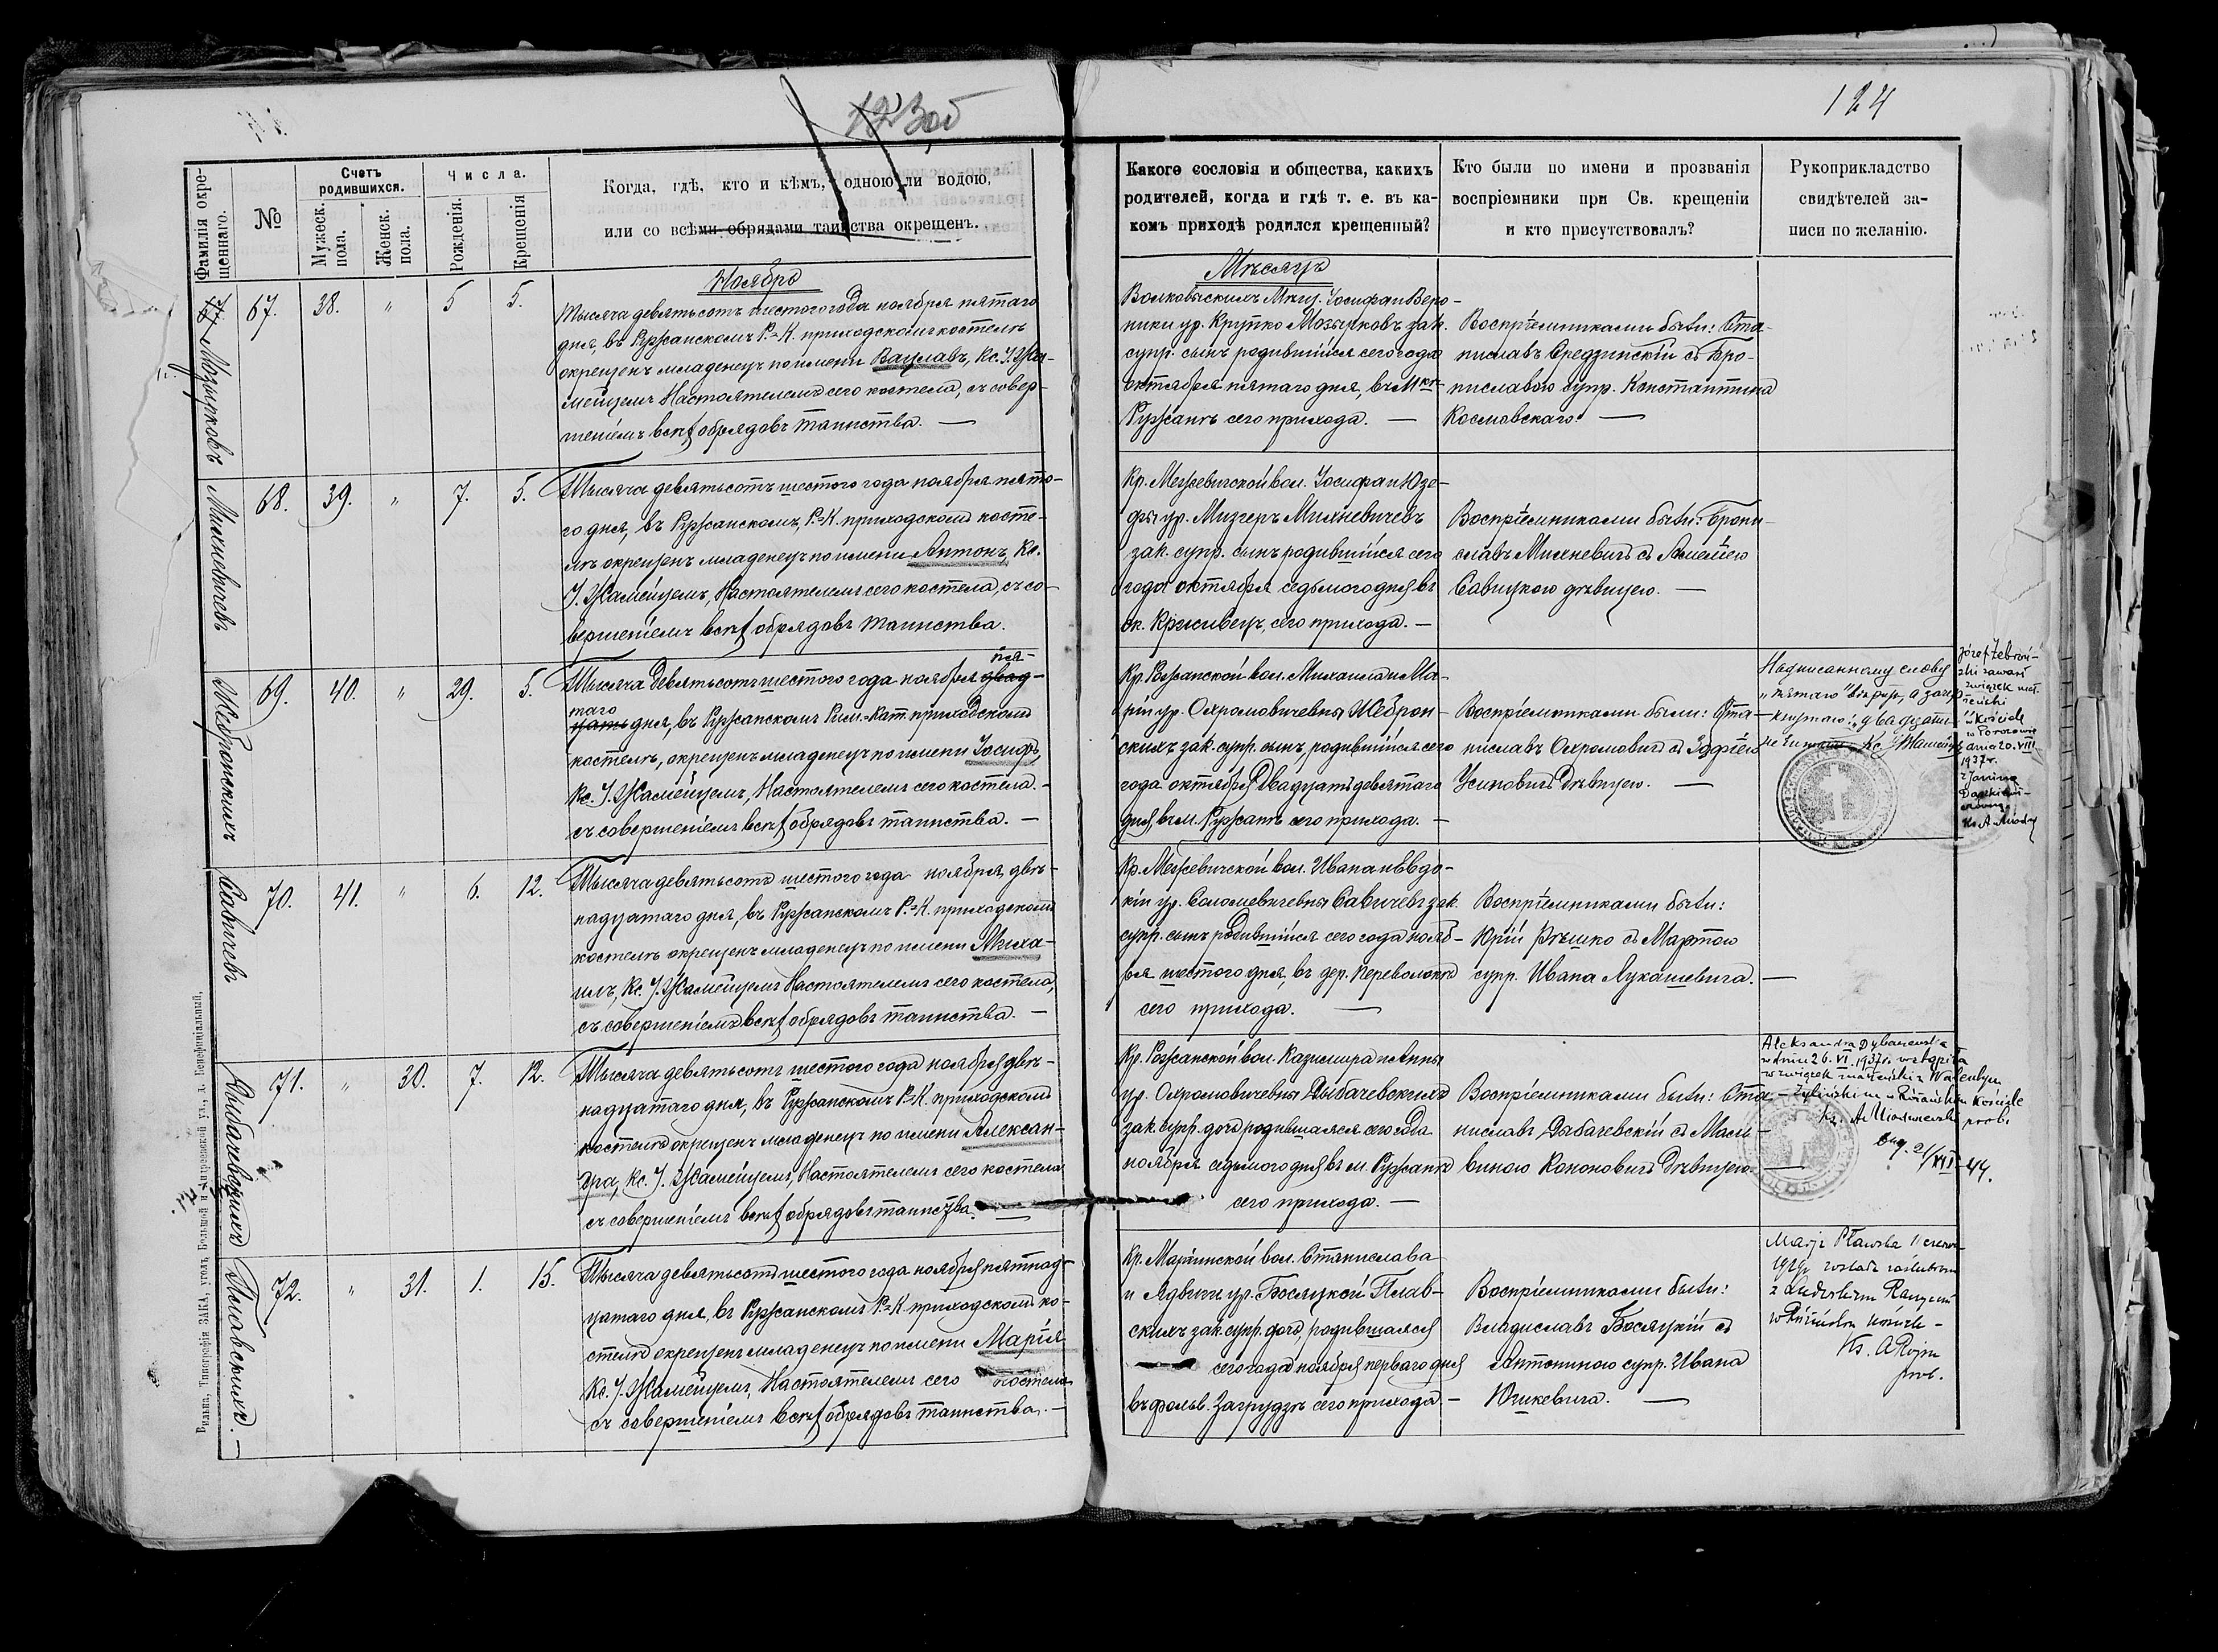 123 об
124
Фамилія окре-
щеннаго.
№
Счетъ
родившихся.
Мужеск.
пола.
Женск.
пола.
Числа.
Рожденія.
Крещенія
Когда, гдѣ, кто и кѣмъ, одною ли водою,
или со всѣми обрядами таинства окрещенъ.
Какого сословія и общества, какихъ
родителей, когда и гдѣ т. е. въ ка-
комъ приходѣ родился крещенный?
Кто были по имени и прозванія
воспріемники при Св. крещеніи
и кто присутствовалъ?
Рукоприкладство
свидѣтелей за-
писи по желанію.
Ноябрь
Мѣсяцъ
Мозырковъ
67.
38.
"
5
5.
Тысяча девятьсотъ шестого года ноября пятаго
дня, въ Ружанскомъ Р.-К. приходскомъ костелѣ
окрещенъ младенецъ по имени Вацлавъ, Кс. І. Жа-
мейцемъ Настоятелемъ сего костела, съ совер-
шеніемъ всѣхъ обрядовъ таинства. —
Волковыскихъ Мѣщ. Іосифа и Веро-
ники ур. Крупко Мозырковъ зак.
супр. сынъ родившійся сего года
октября пятаго дня, въ Мѣст.
Ружанѣ сего прихода. —
Воспріемниками были: Ста-
ниславъ Средзинскій съ Бро-
ниславою супр. Константина
Косновскаго. —
Михневичевъ
68.
39.
"
7.
5.
Тысяча девятьсотъ шестого года ноября пято-
го дня, въ Ружанскомъ Р.-К. приходскомъ косте-
лѣ окрещенъ младенецъ по имени Антонъ, Кс.
І. Жамейцемъ, Настоятелемъ сего костела, съ со-
вершеніемъ всѣхъ обрядовъ таинства.
Кр. Межевичской вол. Іосифа и Юзе-
фы ур. Мизгеръ Михневичевъ
зак. супр. сынъ родившійся сего
года октября седьмого дня въ
ок. Кривецъ, сего прихода. —
Воспріемниками были: Брони-
славъ Михневичъ съ Амеліею
Савицкою дѣвицею. —
Жебронскихъ
69.
40.
"
29.
5.
пя-
Тысяча девятьсотъ шестого года ноября двад-
таго
цать дня, въ Ружанскомъ Рим.-Кат. приходскомъ
костелѣ, окрещенъ младенецъ по имени Іосифъ,
Кс. І. Жамейцемъ, Настоятелемъ сего костела. -
съ совершеніемъ всѣхъ обрядовъ таинства. —
Кр. Ружанской вол. Михаила и Ма-
ріи ур. Охромовичевны Жеброн-
скихъ зак. супр. сынъ, родившійся сего
года октября двадцать девятаго
дня, въ м. Ружанѣ сего прихода. —
Воспріемниками были: Ста-
ниславъ Охромовичъ съ Зофіею
Усиновичъ дѣвицею. —
Надписанному слову
"пятаго" вѣрить, а зачер-
кнутого: "двадцать"
не читать Кс. І. Жамейць
Józef Żebroń-
ski zawarł
związek mał-
żeński
w Kościele
w Porozowie
dnia 20.VIII
1937 r.
z Janiną
Ks. A. Miody
Савичевъ
70.
41.
"
6.
12.
Тысяча девятьсотъ шестого года ноября двѣ-
надцатаго дня, въ Ружанскомъ Р.-К. приходскомъ
костелѣ окрещенъ младенецъ по имени Миха-
илъ, Кс. І. Жамейцемъ Настоятелемъ сего костела,
съ совершеніемъ всѣхъ обрядовъ таинства. —
Кр. Межевичской вол. Ивана и Евдо-
кіи ур. Соломевичевны Савичевъ зак.
супр. сынъ родившійся сего года нояб-
ря шестого дня, въ дер. Переволокѣ
сего прихода. —
Воспріемниками были:
Юрій Рѣшко съ Мартою
супр. Ивана Лукашевича. —
Дыбачевскихъ
71.
"
30.
7.
12.
Тысяча девятьсотъ шестого года ноября двѣ-
надцатаго дня, въ Ружанскомъ Р.-К. приходскомъ
костелѣ окрещенъ младенецъ по имени Алексан-
дра, Кс. І. Жамейцемъ, Настоятелемъ сего костела
съ совершеніемъ всѣхъ обрядовъ таинства. —
Кр. Ружанской вол. Казимира и Анны
ур. Охромовичевны Дыбачевскихъ
зак. супр. дочь родившаяся сего года
ноября седьмого дня въ м. Ружанѣ
сего прихода. —
Воспріемниками были: Ста-
ниславъ Дыбачевскій съ Маль-
виною Кононовичъ дѣвицею. —
Aleksandra Dybaczewska
w dniu 26.VI.1937 r. wstąpiła
w związek małżeński z Walentym
w Różańskim Kościele
prob.
21/XII 44.
Плавскихъ. —
72.
"
31.
1.
15.
Тысяча девятьсотъ шестого года ноября пятнад-
цатаго дня, въ Ружанскомъ Р.-К. приходскомъ ко-
стелѣ окрещенъ младенецъ по имени Марія
Кс. І. Жамейцемъ, Настоятелемъ сего костела
съ совершеніемъ всѣхъ обрядовъ таинства. —
Кр. Маріинской вол. Станислава
и Ядвиги ур. Босяцкой Плав-
скихъ зак. супр. дочь, родившаяся
сего года ноября перваго дня
въ фольв. Загрудзѣ сего прихода. —
Воспріемниками были:
Владиславъ Босяцкій съ
Антониною супр. Ивана
Юшкевича. —
Marja Pławska
1929 r. została zaślubiona
z
w Różańskim kościele -
Ks. A Rojna
prob.
Вильна, Типографія ЗАКА, уголъ Большой и Андреевской ул., д. Бенефиціальный.